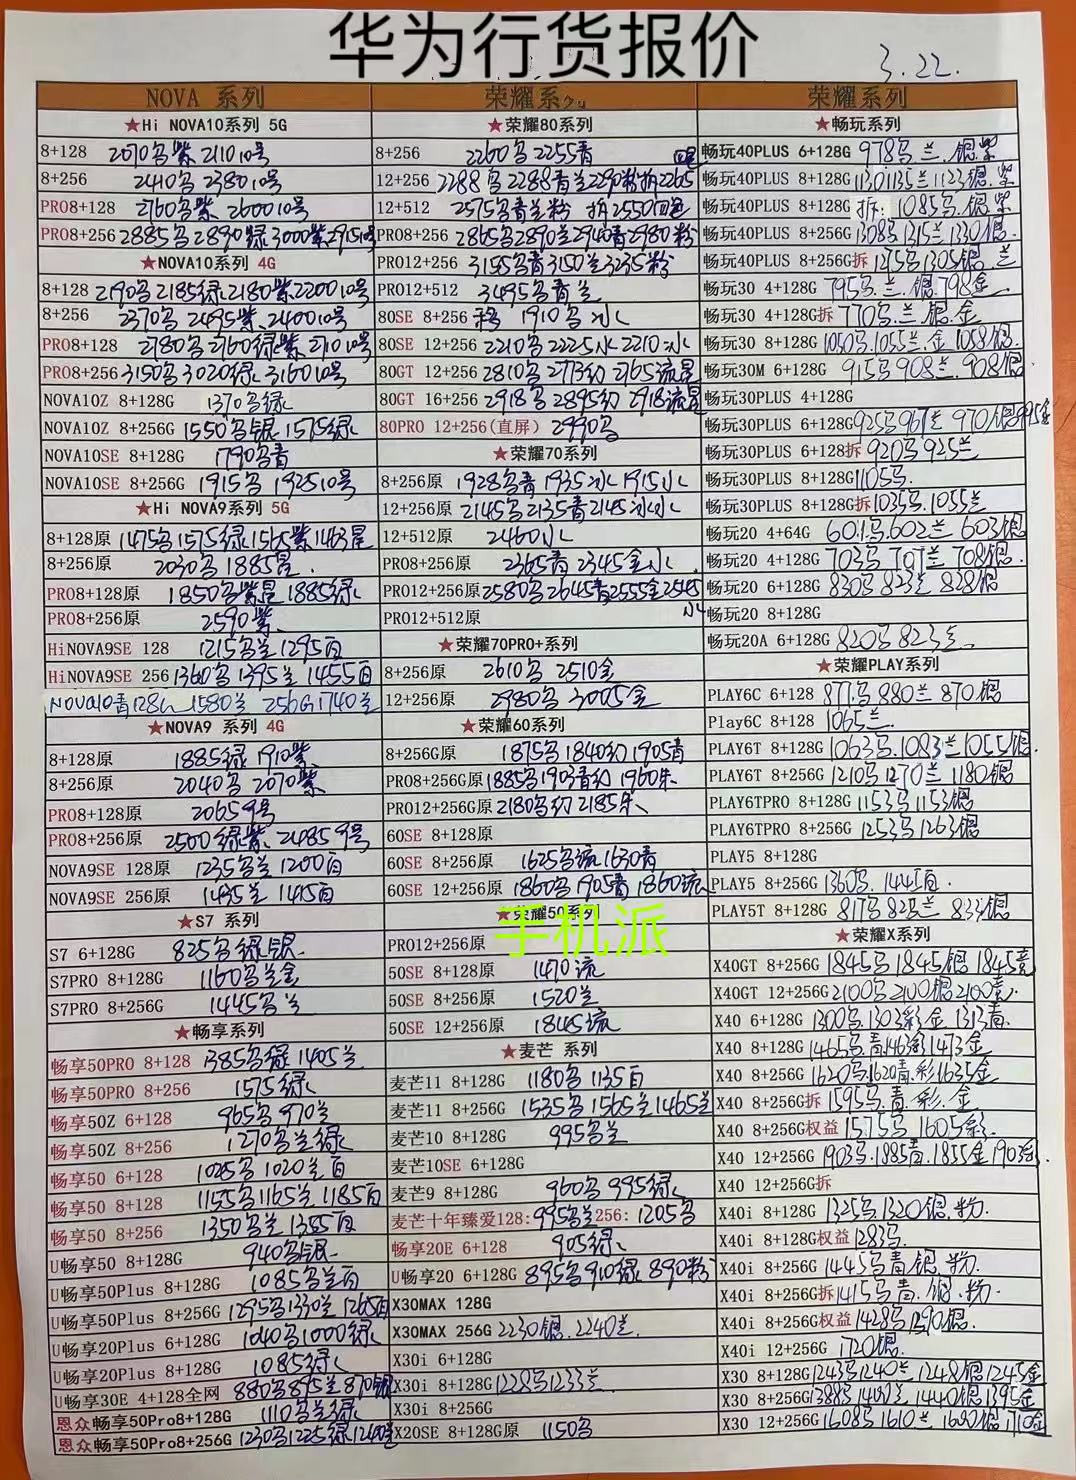 华为行货报价
3.22.
NOVA 系列
★Hi NOVA10系列 5G
8+128 2070乌紫 2110 10号
8+256 2410乌 2380 10号
PRO8+128 2760乌紫 2600 10号
PRO8+256 2885乌 2890绿 3000紫 2915 10号
★NOVA10系列 4G
8+128 2190乌 2185绿 2180紫 2200 10号
8+256 2370乌 2495紫 2400 10号
PRO8+128 2780乌 2760绿紫 2710 10号
PRO8+256 3150乌 3020绿 3160 10号
NOVA10Z 8+128G 1370乌绿
NOVA10Z 8+256G 1550乌银 1575绿
NOVA10SE 8+128G 1790乌青
NOVA10SE 8+256G 1915乌 1925 10号
★Hi NOVA9系列 5G
8+128原 1475乌 1575绿 1565紫 1463星
8+256原 2030乌 1885星
PRO8+128原 1850乌紫星 1885绿
PRO8+256原 2590紫
HiNOVA9SE 128 1215乌兰 1295百
HiNOVA9SE 256 1360乌 1395兰 1455百
NOVA10青128G 1580兰 256G1740兰
★NOVA9 系列 4G
8+128原 1885绿 1910紫
8+256原 2040乌 2070紫
PRO8+128原 2065 9号
PRO8+256原 2500绿紫 2485 9号
NOVA9SE 128原 1235乌兰 1200百
NOVA9SE 256原 1435兰 1415百
★S7 系列
S7 6+128G 825乌绿银
S7PRO 8+128G 1160乌兰金
S7PRO 8+256G 1445乌兰
★畅享系列
畅享50PRO 8+128 1385乌绿 1405兰
畅享50PRO 8+256 1575绿
畅享50Z 6+128 965乌 970兰
畅享50Z 8+256 1270乌兰绿
畅享50 6+128 1025乌 1020兰百
畅享50 8+128 1155乌 1165兰 1185百
畅享50 8+256 1350乌兰 1355百
U畅享50 8+128G 940乌银
U畅享50Plus 8+128G 1085乌兰百
U畅享50Plus 8+256G 1295乌 1330兰 1265百
U畅享20Plus 6+128G 1040乌 1000绿
U畅享20Plus 8+128G 1085绿
U畅享30E 4+128全网 880乌 895兰 870银
恩众畅享50Pro8+128G 1110乌兰绿
恩众畅享50Pro8+256G 1230乌 1225绿 1240兰
荣耀系列
★荣耀80系列
8+256 2260乌 2255青
12+256 2288乌 2288青兰 2290粉 拆2265
12+512 2575乌青兰粉 拆2550四色
PRO8+256 2865乌 2890兰 2940青 2980粉
PRO12+256 3155乌青 3150兰 3235粉
PRO12+512 3495乌青兰
80SE 8+256 1910乌冰
80SE 12+256 2210乌 2225水 2210冰
80GT 12+256 2810乌 2773幻 2765流星
80GT 16+256 2918乌 2895幻 2918流星
80PRO 12+256(直屏) 2990乌
★荣耀70系列
8+256原 1928乌青 1935冰 1915水
12+256原 2145乌 2135青 2145冰水
12+512原 2460水
PRO8+256原 2365青 2345金水
PRO12+256原 2580乌 2645青 2555金 2545水
PRO12+512原
★荣耀70PRO+系列
8+256原 2610乌 2510金
12+256原 2980乌 3005金
★荣耀60系列
8+256G原 1875乌 1840幻 1905青
PRO8+256G原 1885乌 1903青幻 1960朱
PRO12+256G原 2180乌幻 2185朱
60SE 8+128原
60SE 8+256原 1625乌流 1630青
60SE 12+256原 1860乌 1905青 1860流
★荣耀50系列
手机派
PRO12+256原
50SE 8+128原 1470流
50SE 8+256原 1520兰
50SE 12+256原 1845流
★麦芒 系列
麦芒11 8+128G 1180乌 1135百
麦芒11 8+256G 1535乌 1565兰 1465兰
麦芒10 8+128G 995乌兰
麦芒10SE 6+128G
麦芒9 8+128G 960乌 995绿
麦芒十年臻爱128:995乌兰256: 1205乌
畅享20E 6+128 905绿
U畅享20 6+128G 895乌 910绿 890粉
X30MAX 128G
X30MAX 256G 2230银. 2240兰.
X30i 6+128G
X30i 8+128G 1228乌 1233兰
X30i 8+256G
X20SE 8+128G原 1150乌
荣耀系列
★畅玩系列
畅玩40PLUS 6+128G 978乌.兰.银.紫
畅玩40PLUS 8+128G 1130 1135兰 1123银.紫
畅玩40PLUS 8+128G 拆: 1085乌.银.紫
畅玩40PLUS 8+256G 1308乌 1315兰 1330银.
畅玩40PLUS 8+256G拆 1295乌 1305银.兰
畅玩30 4+128G 795乌.兰.银.798金
畅玩30 4+128G拆 770乌.兰.银.金
畅玩30 8+128G 1050乌.1055兰.金 1058银.
畅玩30M 6+128G 915乌 908兰. 908银
畅玩30PLUS 4+128G
畅玩30PLUS 6+128G 925乌 967兰 970银 995金
畅玩30PLUS 6+128拆 920乌 925兰
畅玩30PLUS 8+128G 1105乌.
畅玩30PLUS 8+128G拆 1035乌.1055兰
畅玩20 4+64G 601乌 602兰 603银
畅玩20 4+128G 703乌 707兰 708银.
畅玩20 6+128G 830乌 823兰 828银
畅玩20 8+128G
畅玩20A 6+128G 820乌 823兰.
★荣耀PLAY系列
PLAY6C 6+128 877乌 880兰 870银
Play6C 8+128 1065兰.
PLAY6T 8+128G 1063乌.1083兰 1055银.
PLAY6T 8+256G 1210乌 1270兰 1180银
PLAY6TPRO 8+128G 1153乌 1153银
PLAY6TPRO 8+256G 1253乌 1263银
PLAY5 8+128G
PLAY5 8+256G 1360乌. 1445百.
PLAY5T 8+128G 817乌 825兰 833银
★荣耀X系列
X40GT 8+256G 1845乌 1845银 1845竞
X40GT 12+256G 2100乌 2100银 2100竞.
X40 6+128G 1300乌 1303彩金 1313青.
X40 8+128G 1465乌.青1463彩 1473金
X40 8+256G 1620乌.1620青.彩1635金
X40 8+256G拆 1595乌.青.彩.金
X40 8+256G权益 1575乌 1605彩.
X40 12+256G 1903乌.1885青.1855金 1903彩.
X40 12+256G拆
X40i 8+128G 1325乌 1320银.粉.
X40i 8+128G权益 1283乌.
X40i 8+256G 1445乌青银.粉.
X40i 8+256G拆 1415乌青.银.粉.
X40i 8+256G权益 1428乌 1390银.
X40i 12+256G 1720银.
X30 8+128G 1243乌 1240兰 1248银 1245金
X30 8+256G 1388乌 1400兰 1440银 1395金
X30 12+256G 1608乌 1610兰 1690银 1710金